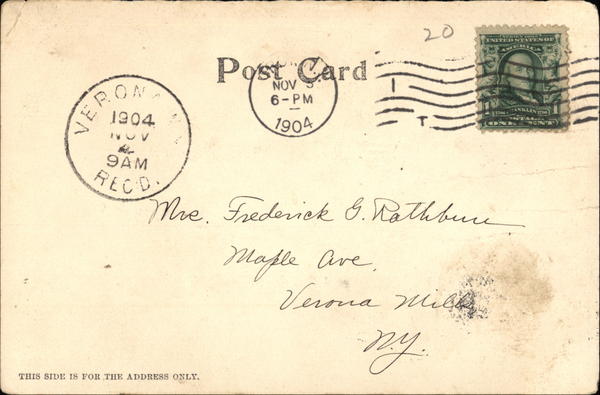 20
UNITED STATES OF
AMERICA
Post Card
NOV 3
6-PM
1904
I
T
FRANKLIN
ONE CENT
VERONA
1904
NOV
9AM
REC'D.
Mrs. Frederick G. Rathbun
Maple Ave.
Verona Mills
N.Y.
THIS SIDE IS FOR THE ADDRESS ONLY.